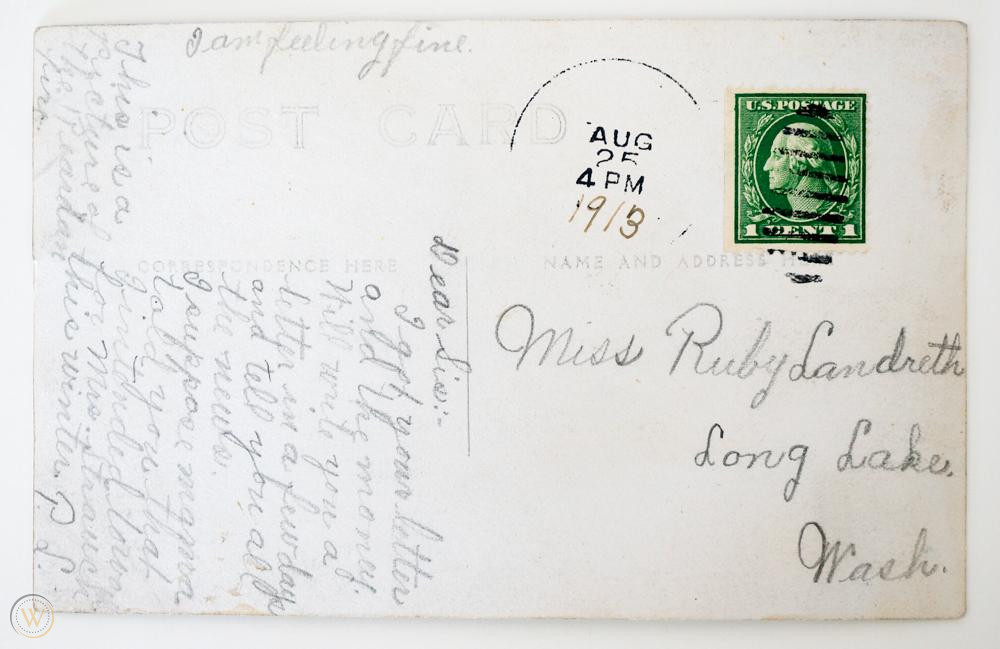 I am feeling fine.
POST CARD
AUG
25
4 PM
1913
U.S. POSTAGE
1 CENT 1
CORRESPONDENCE HERE
NAME AND ADDRESS H
Miss Ruby Landreth
Long Lake,
Wash.
Dear Sis:-
I got your letter
and the money.
Will write you a
letter in a few days
and tell you all
the news.
I suppose mama
told you that
I intended to work
for Mrs. Strauch
this winter. P. L.
This is a
picture of
the Reardan
fire.
W